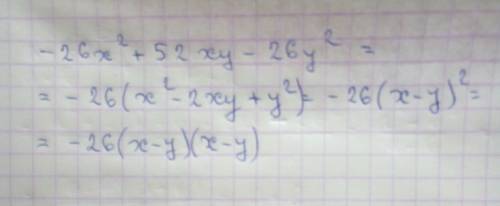 -26x² + 52xy - 26y² =
= -26(x² - 2xy + y²) = -26(x-y)² =
= -26(x-y)(x-y)